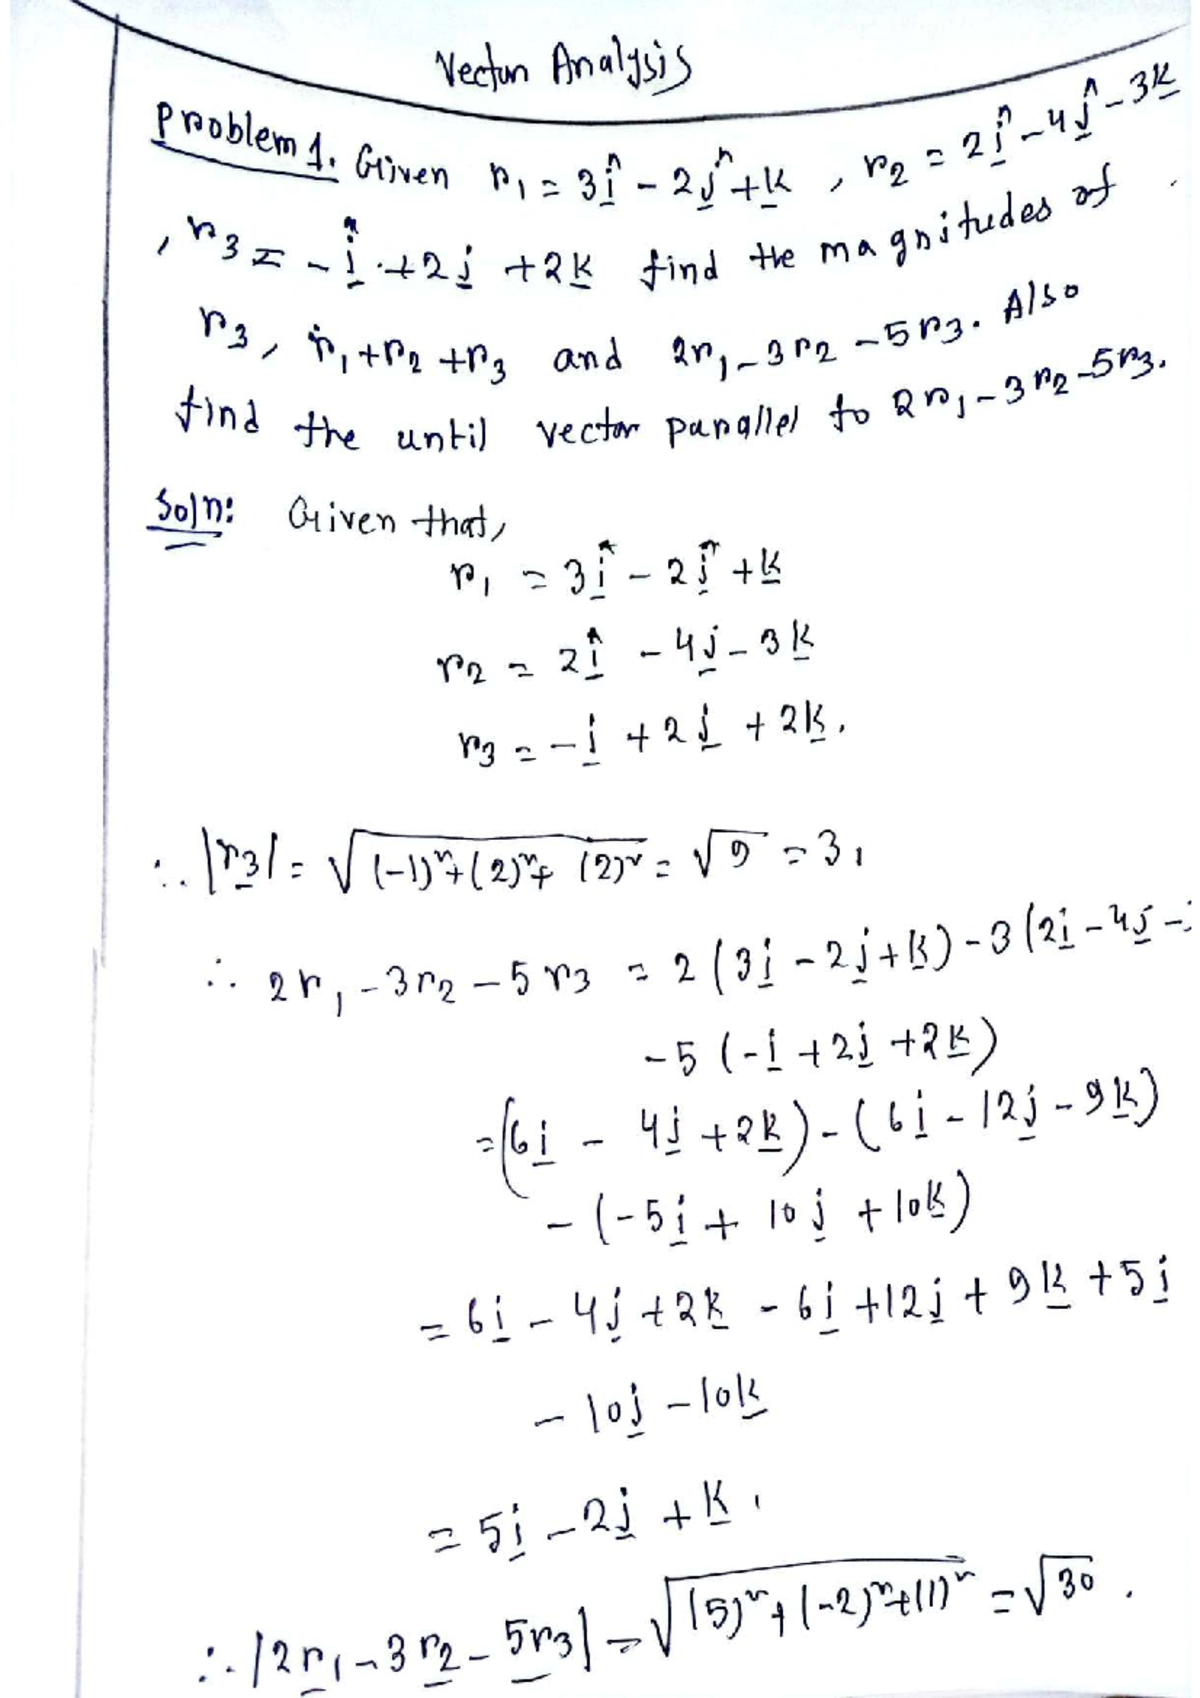 Vector Analysis
Problem 1. Given r₁ = 3î - 2ĵ + k , r₂ = 2î - 4ĵ - 3k
, r₃ = - î + 2j + 2k find the magnitudes of
r₃, r₁ + r₂ + r₃ and 2r₁ - 3r₂ - 5r₃. Also
find the until vector parallel to 2r₁ - 3r₂ - 5r₃.
Soln: Given that,
r₁ = 3î - 2ĵ + k
r₂ = 2î - 4j - 3k
r₃ = - i + 2j + 2k.
∴ |r₃| = √((-1)² + (2)² + (2)²) = √9 = 3,
∴ 2r₁ - 3r₂ - 5r₃ = 2(3i - 2j + k) - 3(2i - 4j -
- 5(-i + 2j + 2k)
= (6i - 4j + 2k) - (6i - 12j - 9k)
- (-5i + 10j + 10k)
= 6i - 4j + 2k - 6i + 12j + 9k + 5i
- 10j - 10k
= 5i - 2j + k.
∴ |2r₁ - 3r₂ - 5r₃| = √((5)² + (-2)² + (1)²) = √30.